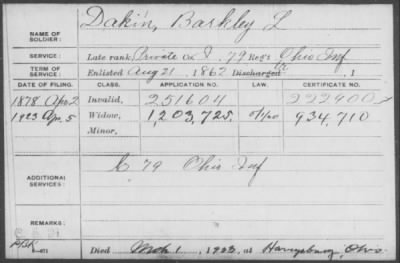 NAME OF SOLDIER: Dakin, Barkley L
SERVICE: Late rank, Private Co. I, 79 Reg't Ohio Inf
TERM OF SERVICE: Enlisted Aug 21, 1862 Discharged, 1
DATE OF FILING. CLASS. APPLICATION NO. LAW. CERTIFICATE NO.
1878 Apr 2 Invalid, 251604 222900
1923 Ap. 5 Widow, 1,203,725. 934,710
Minor,
ADDITIONAL SERVICES: 79 Ohio Inf
REMARKS:
Died Mch 1, 1923, at Harveysburg, Ohio.